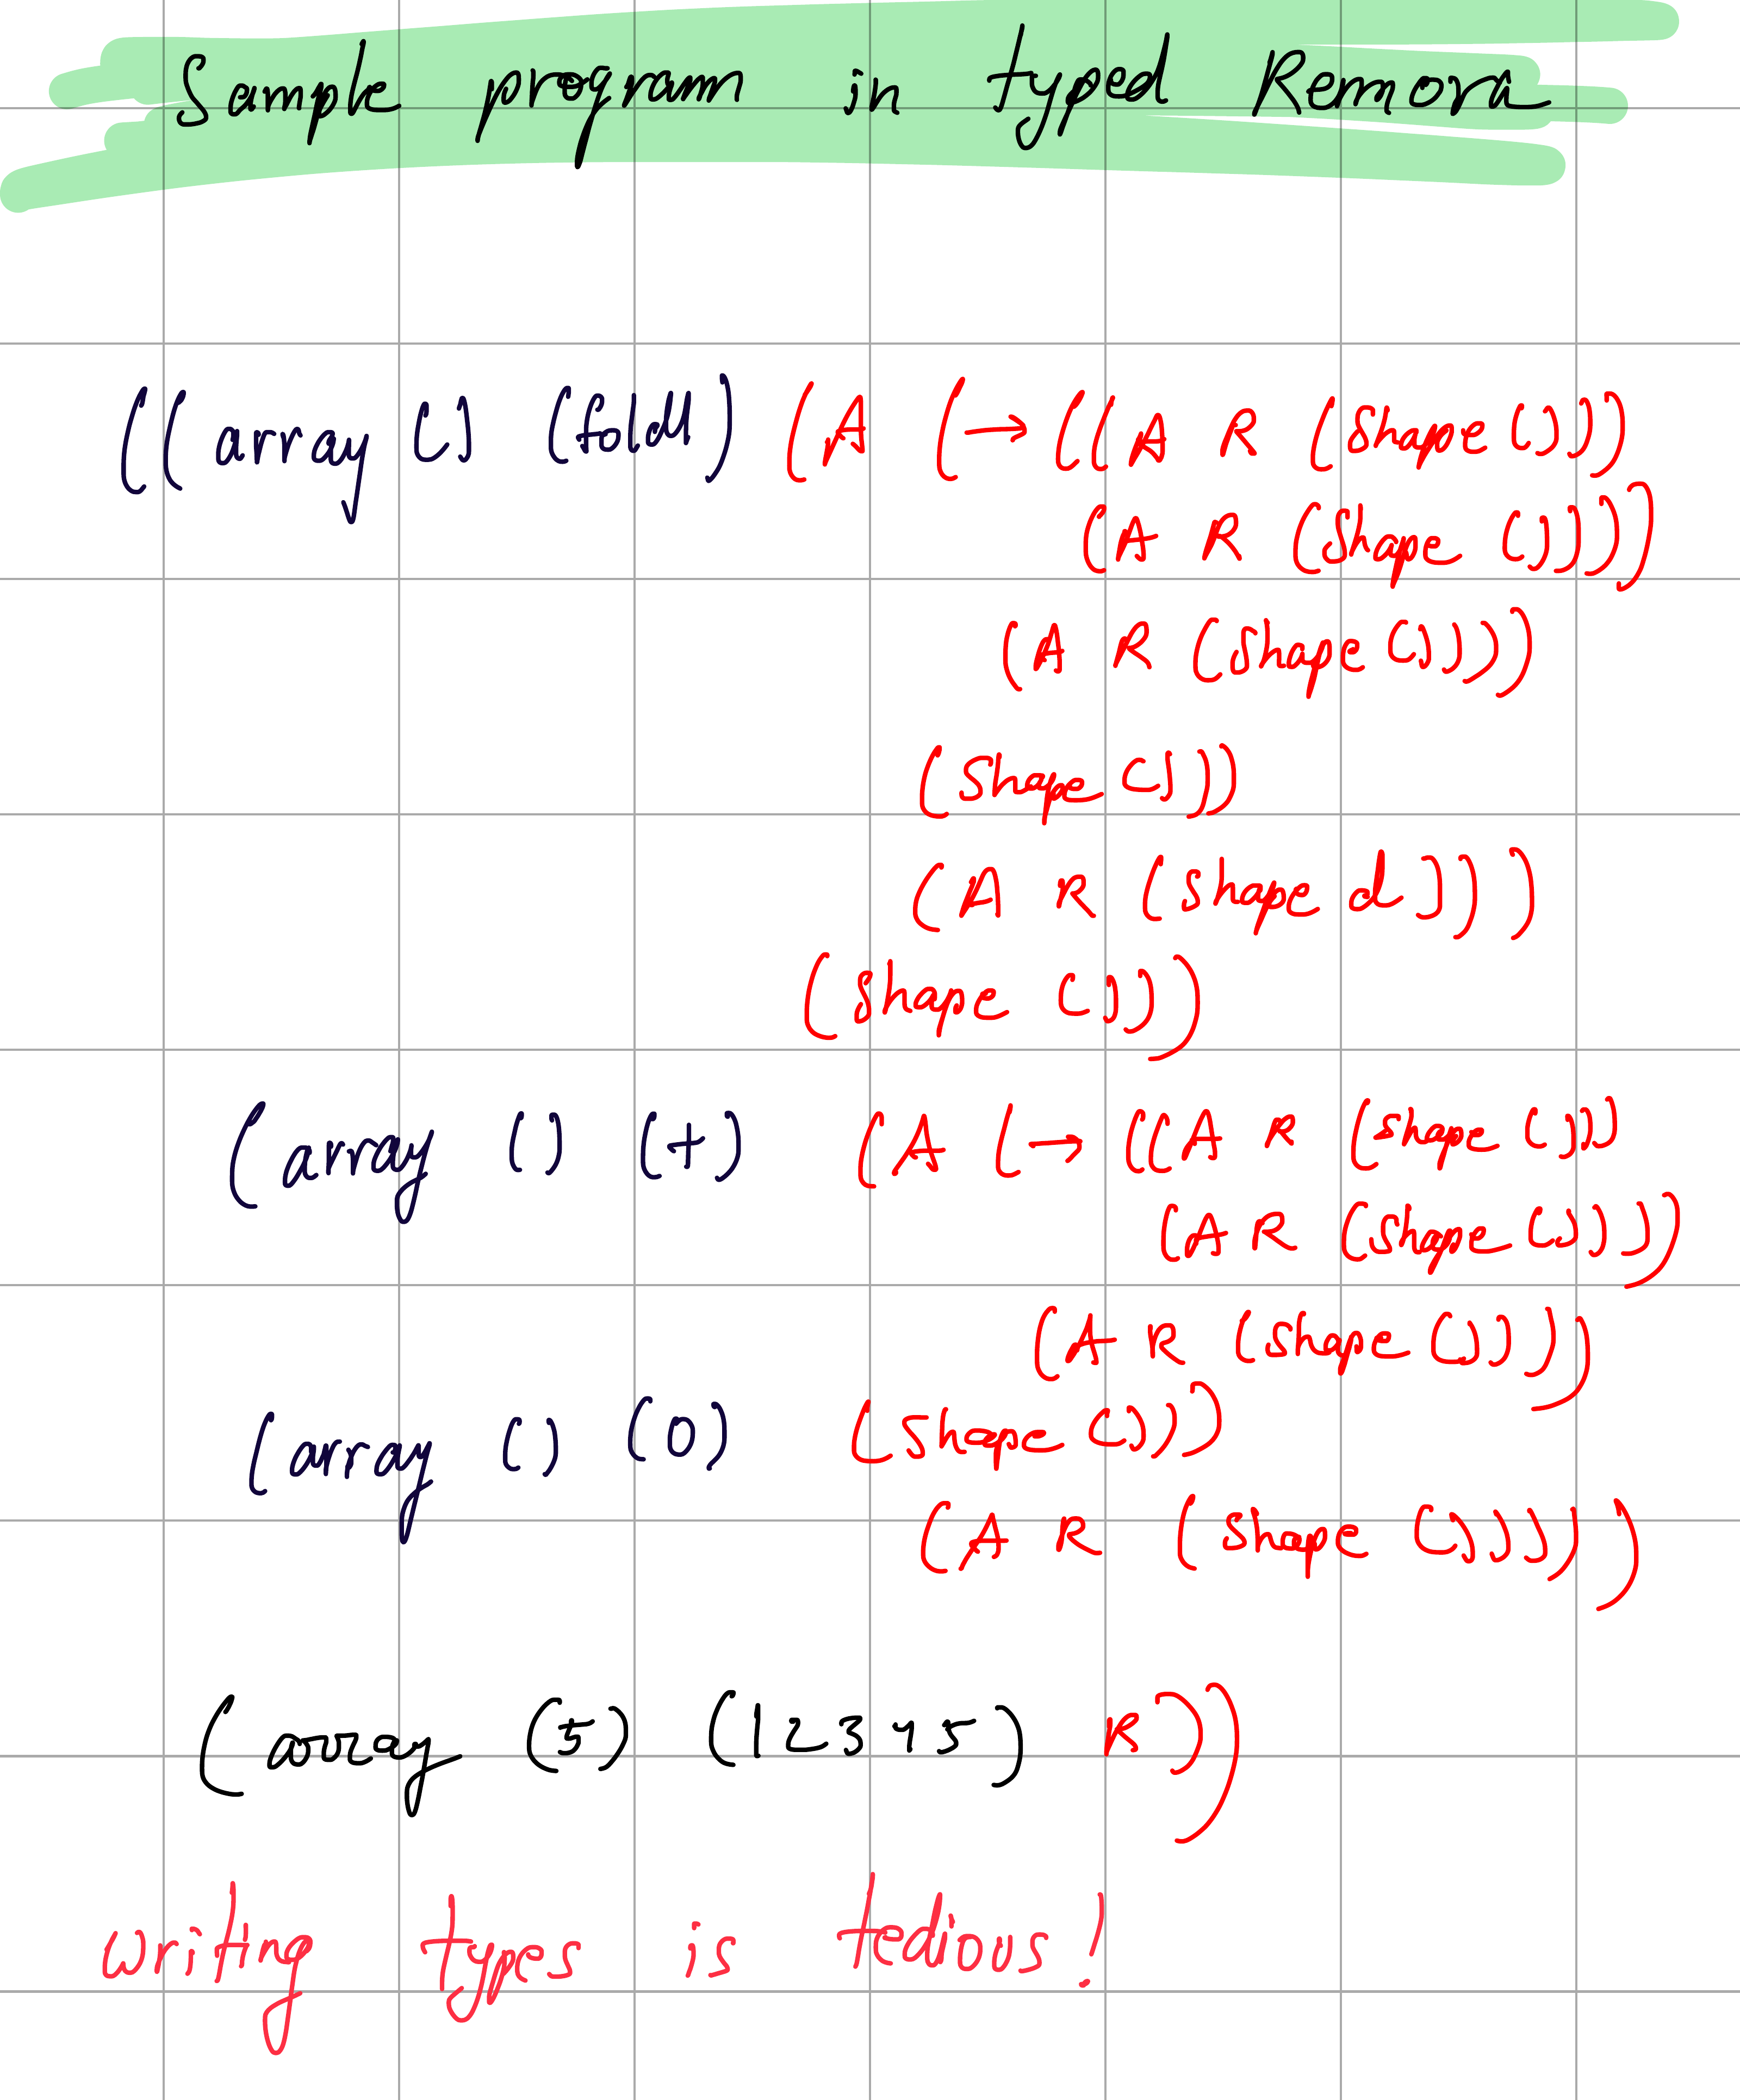 Sample program in typed Remora
((array () (fold) (A (→ ((A R (shape ()))
(A R (shape ()))))
(A R (shape ())))
(shape ()))
(A R (shape d))))
(shape ()))
(array () (+) (A (→ ((A R (shape ()))
(A R (shape ())))
(A R (shape ())))
(array () (0) (shape ()))
(A R (shape ()))))
(array (5) (1 2 3 4 5) R))
writing types is tedious!